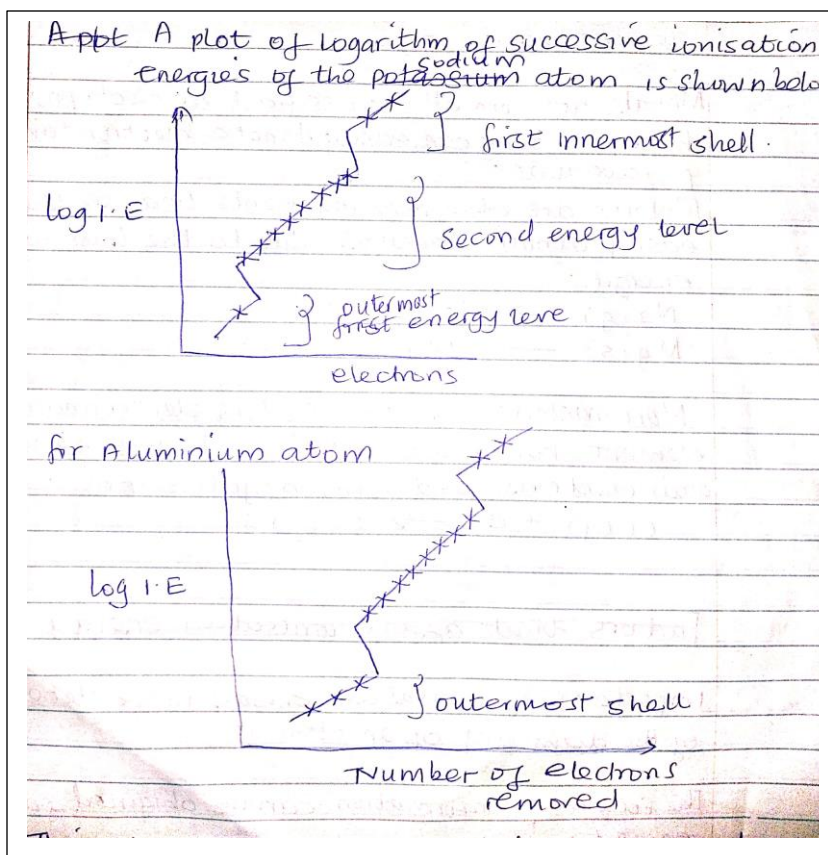 A ppt A plot of logarithm of successive ionisation
sodium
energies of the potassium atom is shown belo
first innermost shell.
log I·E
second energy level
outermost
first energy leve
electrons
for Aluminium atom
log I·E
outermost shell
Number of electrons
removed